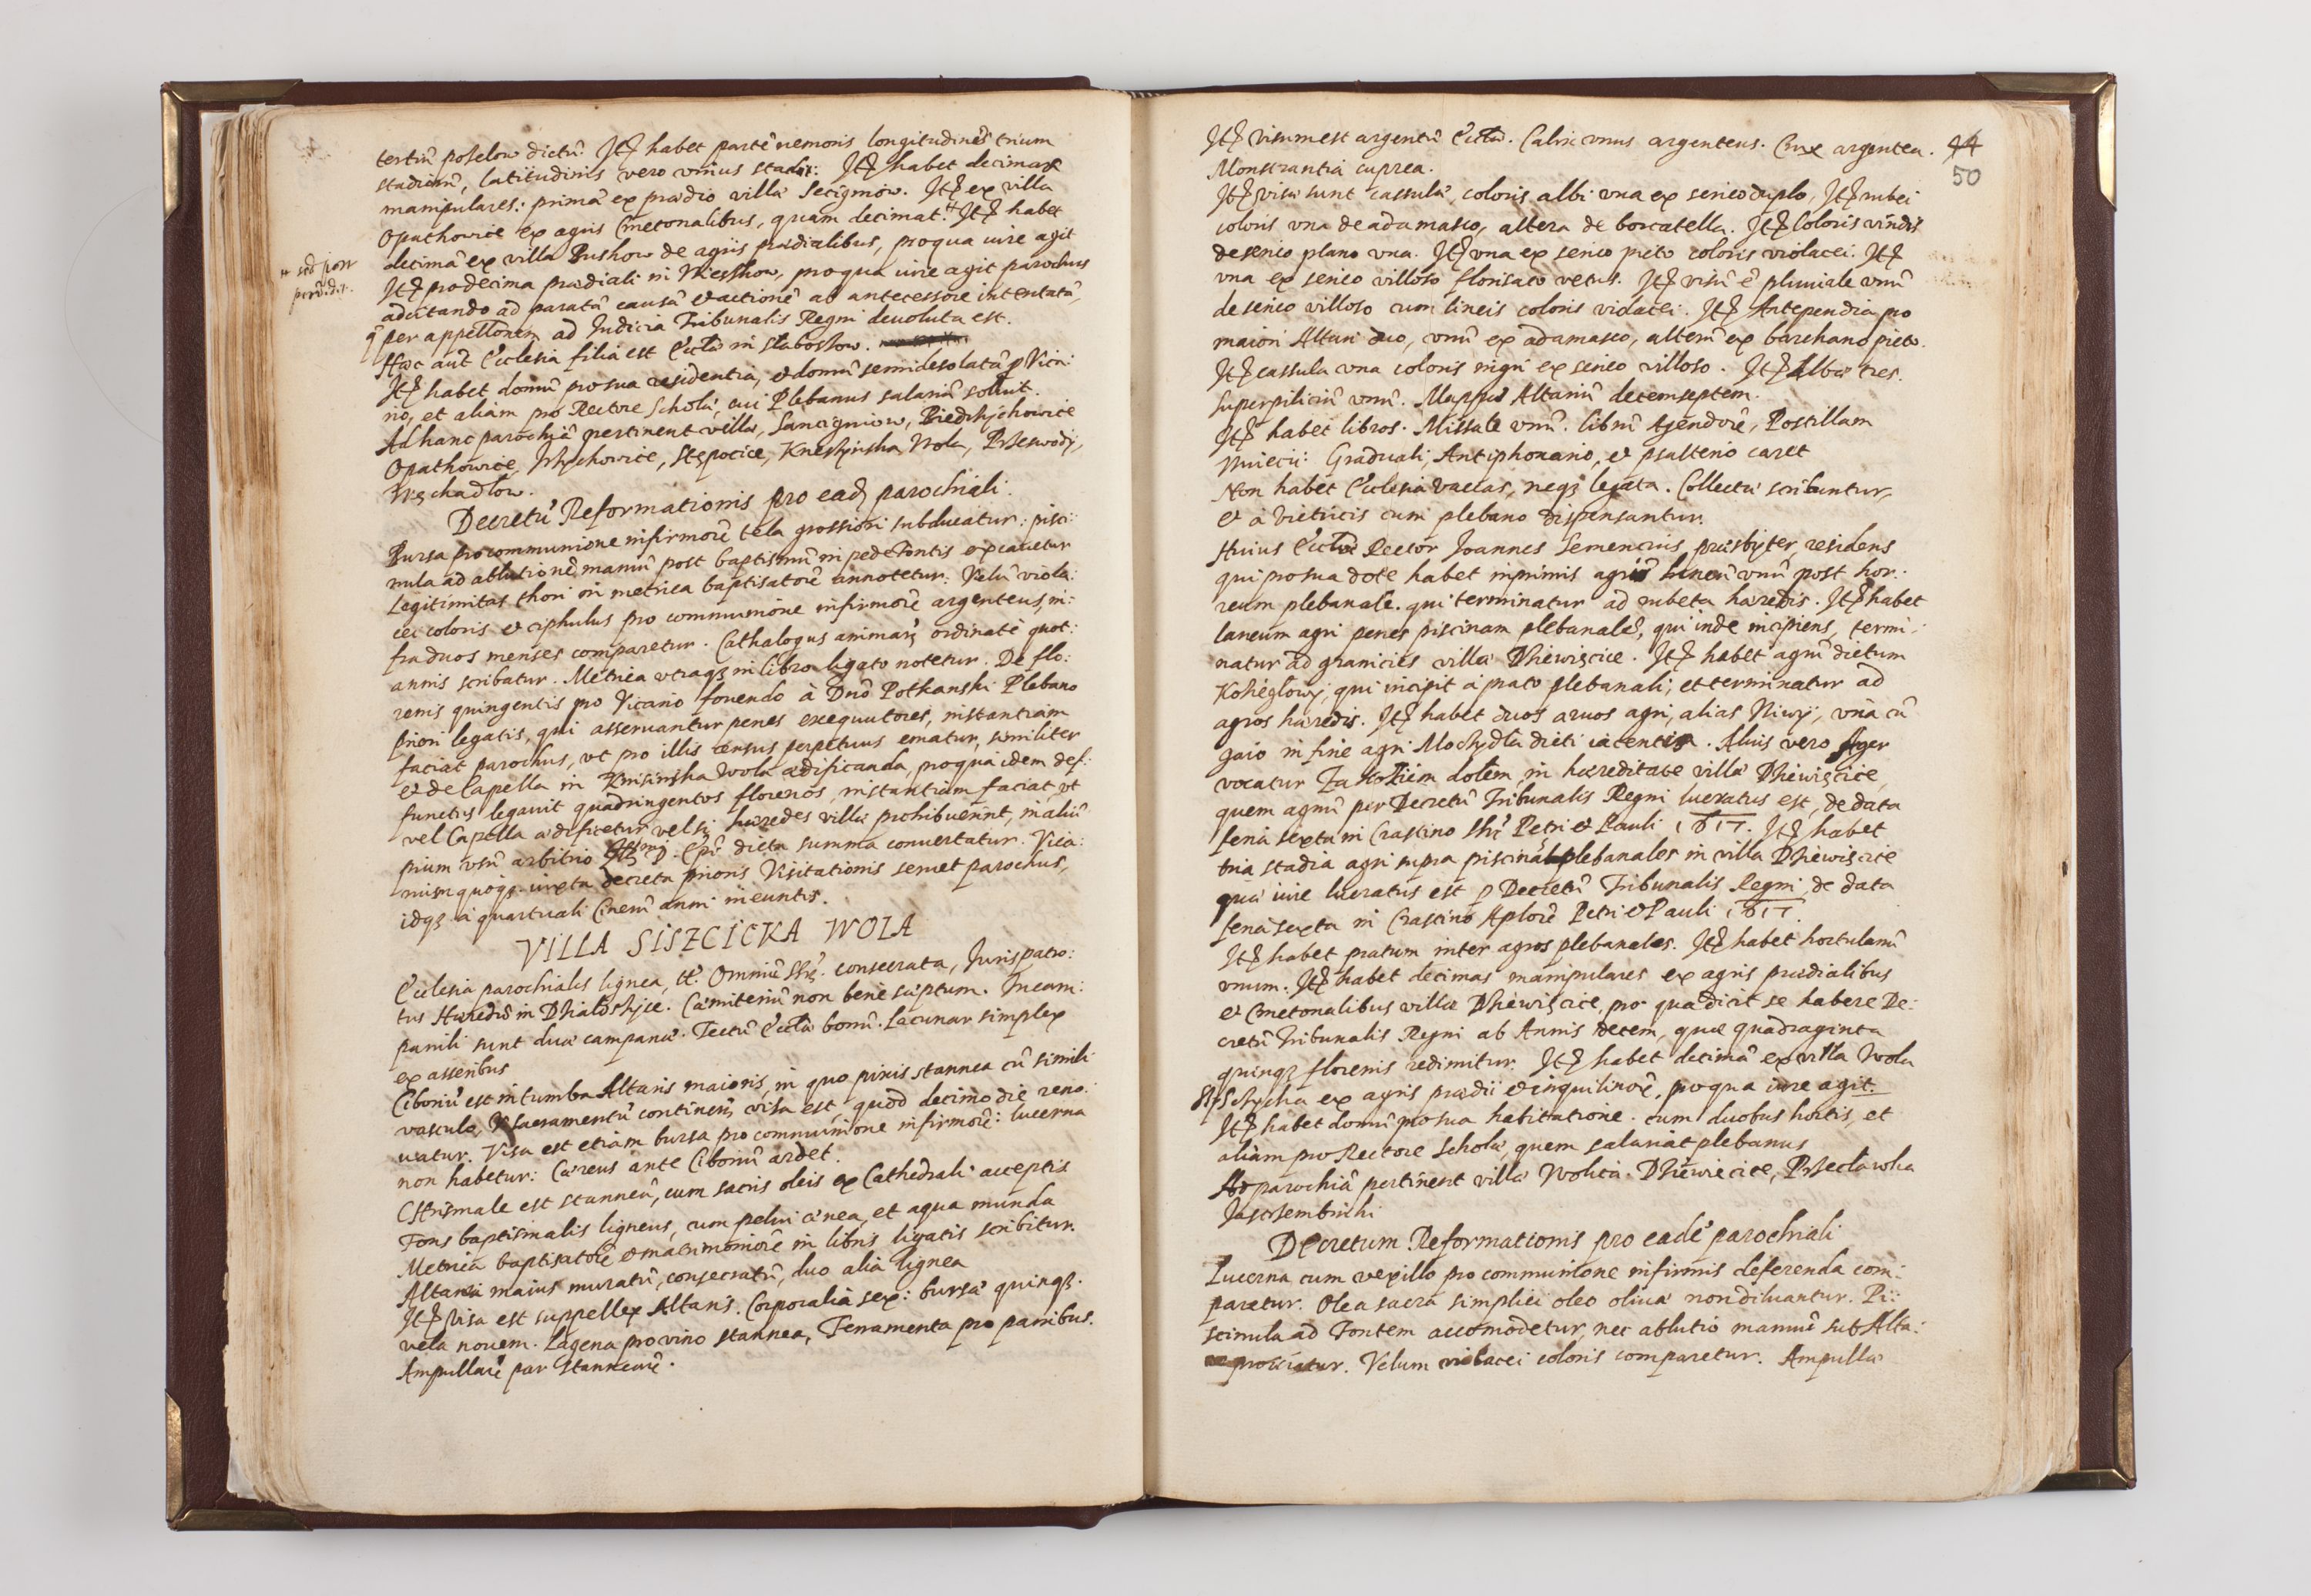 tertiũ poselow dictũ. Itẽ habet partẽ nemoris longitudinẽ trium
stadiorũ, latitudinis vero vnius stadii: Itẽ habet decimas
manipulares: primã ex prædio villæ Secigmow. Itẽ ex villa
Opathowice ex agris Cmetonalibus, quam decimat.⁺ Itẽ habet
decimã ex villa Bushow de agris prædialibus, pro qua iure agit
Itẽ pro decima prædiali in Mieshow, pro qua iure agit parochus
adcitando ad paratã causã & actionẽ ab antecessore intentatã,
q̃ per appellõnem ad Iudicia Tribunalis Regni deuoluta est.
Hæc aut̃ Ecclesia filia est Eccłæ in Slaboszow.
Itẽ habet domũ pro sua residentia, & domũ semidesolatã p Vica:
rio, et aliam pro Rectore Scholæ, cui Plebanus salariũ soluit.
Ad hanc parochiã pertinent villæ, Sancigniow, Biedrzychowice
Opathowice, Wszychowice, Stępocice, Knyszynska Wola, Przeswody,
Trzchadlow.
+ sed post
Decretũ Reformationis pro eadẽ parochiali.
Bursa pro communione infirmorũ tela grossiori subducatur: pisci:
nula ad ablutionẽ manuũ post baptismũ in pede Fontis excauetur
Legitimitas thori in metrica baptisatorũ annotetur: Velũ viola:
cei coloris & ciphulus pro communione infirmorũ argenteus in:
fra duos menses comparetur. Cathalogus animarũ ordinatè quot:
annis scribatur. Metrica vtraqȝ in libro ligato notetur. De flo:
renis quingentis pro Vicario fouendo à Dnõ Potkanski Plebano
priori legatis, qui asseruantur penes exequutores, instantiam
faciat parochus, vt pro illis census perpetuus ematur, similiter
& de Capella in Knisinska Wola ædificanda, pro qua idem def:
functus legauit quadringentos florenos, instantiam faciat, vt
vel Capella ædificetur, vel si hæredes villæ prohibuerint, in aliũ
pium vsũ arbitrio Illmi D. Epĩ dicta summa conuertatur. Vica:
rium quoqȝ iuxta decreta prioris Visitationis seruet parochus,
idqȝ à quartuali Cinerũ anni ineuntis.
VILLA SISZCICKA WOLA
Ecclesia parochialis lignea, tt̃. Omniũ SSrũ. consecrata, Iuris patro:
tus Hæredũ in Dzialoszyce. Cæmiteriũ non bene sæptum. In cam:
panili sunt duæ campanæ. Tectũ Eccłæ bonũ. Lacunar simplex
ex asseribus
Ciboriũ est in tumba Altaris maioris, in quo pixis stannea cũ simili
vasculo, Vsacramentũ continens visa est quod decimo die reno:
uatur. Visa est etiam bursa pro communione infirmorũ: lucerna
non habetur: Cæreus ante Ciboriũ ardet.
Chrismale est stanneũ, cum sacris oleis ex Cathedrali acceptis
Fons baptismalis ligneus, cum pelui ænea, et aqua munda
Metrica baptisatorũ & matrimoniorũ in libris ligatis scribitur.
Altaria maius muratũ, consecratũ, duo alia lignea
Itẽ visa est suppellex Altaris. Corporalia sex: bursæ quinqȝ.
vela nouem. Lagena pro vino stannea, Ferramenta pro panibus.
Ampullarũ par stannearũ.
44
50
Itẽ visum est argentũ Eccłæ. Calix vnus argenteus. Crux argentea.
Monstrantia cuprea.
Itẽ visæ sunt cassulæ, coloris albi vna ex serico duplo, Itẽ rubei
coloris vna de adamasco, altera de borcatella. Itẽ Coloris viridis
de serico plano vna. Itẽ vna ex serico picto coloris violacei. Itẽ
vna ex serico villoso florisato vetus. Itẽ visũ ẽ pluuiale vnũ
de serico villoso cum lineis coloris violacei. Itẽ Antependia pro
maiori Altari duo, vnũ ex adamasco, alterũ ex barchano picto.
Itẽ cassula vna coloris nigri ex serico villoso. Itẽ Albæ tres.
Superpiliciũ vnũ. Mappæ Altariũ decem septem.
Itẽ habet libros. Missale vnũ. librũ Agendorũ, Postillam
Wuiecii: Graduali, Antiphonario, & psalterio caret
Non habet Ecclesia vaccas, neqȝ legata. Collectæ scribuntur,
& à Vietricis cum plebano dispensantur.
Huius Eccłæ Rector Ioannes Semencius, præsbyter, residens
qui pro sua dote habet inprimis agrũ laneũ vnũ post hor:
reum plebanale. qui terminatur ad rubeta hæredis. Itẽ habet
laneum agri penes piscinam plebanalẽ, qui inde incipiens, termi:
natur ad granicies villæ Dziewięcice. Itẽ habet agrũ dictum
Koziegłowy, qui incipit à prato plebanali, et terminatur ad
agros hæredis. Itẽ habet duos aruos agri, alias Niwy, vna cũ
gaio in fine agri Mochydła dicti iacentia. Alius vero Ager
vocatur Za Koziem dołem, in hæreditate villæ Dziewięcice,
quem agrũ per Decretũ Tribunalis Regni lucratus est, de data
feria sexta in Crastino SSr̃ Petri & Pauli 1617. Itẽ habet
tria stadia agri supra piscinas plebanales in villa Dziewięcice
quæ iure lucratus est p Decretũ Tribunalis Regni, de data
feria sexta in Crastino Aplorũ Petri & Pauli 1617.
Itẽ habet pratum inter agros plebanales. Itẽ habet hortulanũ
vnum. Itẽ habet decimas manipulares ex agris prædialibus
& Cmetonalibus villæ Dziewięcice, pro qua dicit se habere De:
cretũ Tribunalis Regni ab Annis decem, quæ quadraginta
quinqȝ florenis redimitur. Itẽ habet decimã ex villa Wola
Szyszycka ex agris prædii & inquilinorũ, pro qua iure agit.
Itẽ habet domũ pro sua habitatione. cum duobus hortis, et
aliam pro Rectore Scholæ, quem salariat plebanus
Ad parochiã pertinent villæ Wolica. Dziewiecice, Przecławka
Jastrsembinki
Decretum Reformationis pro eadẽ parochiali
Lucerna cum vexillo pro communione infirmis deferenda com:
paretur. Olea sacra simplici oleo oliuæ non diluantur. Pi:
scinula ad Fontem accomodetur, nec ablutio manuũ sub Alta:
proiiciatur. Velum violacei coloris comparetur. Ampullæ